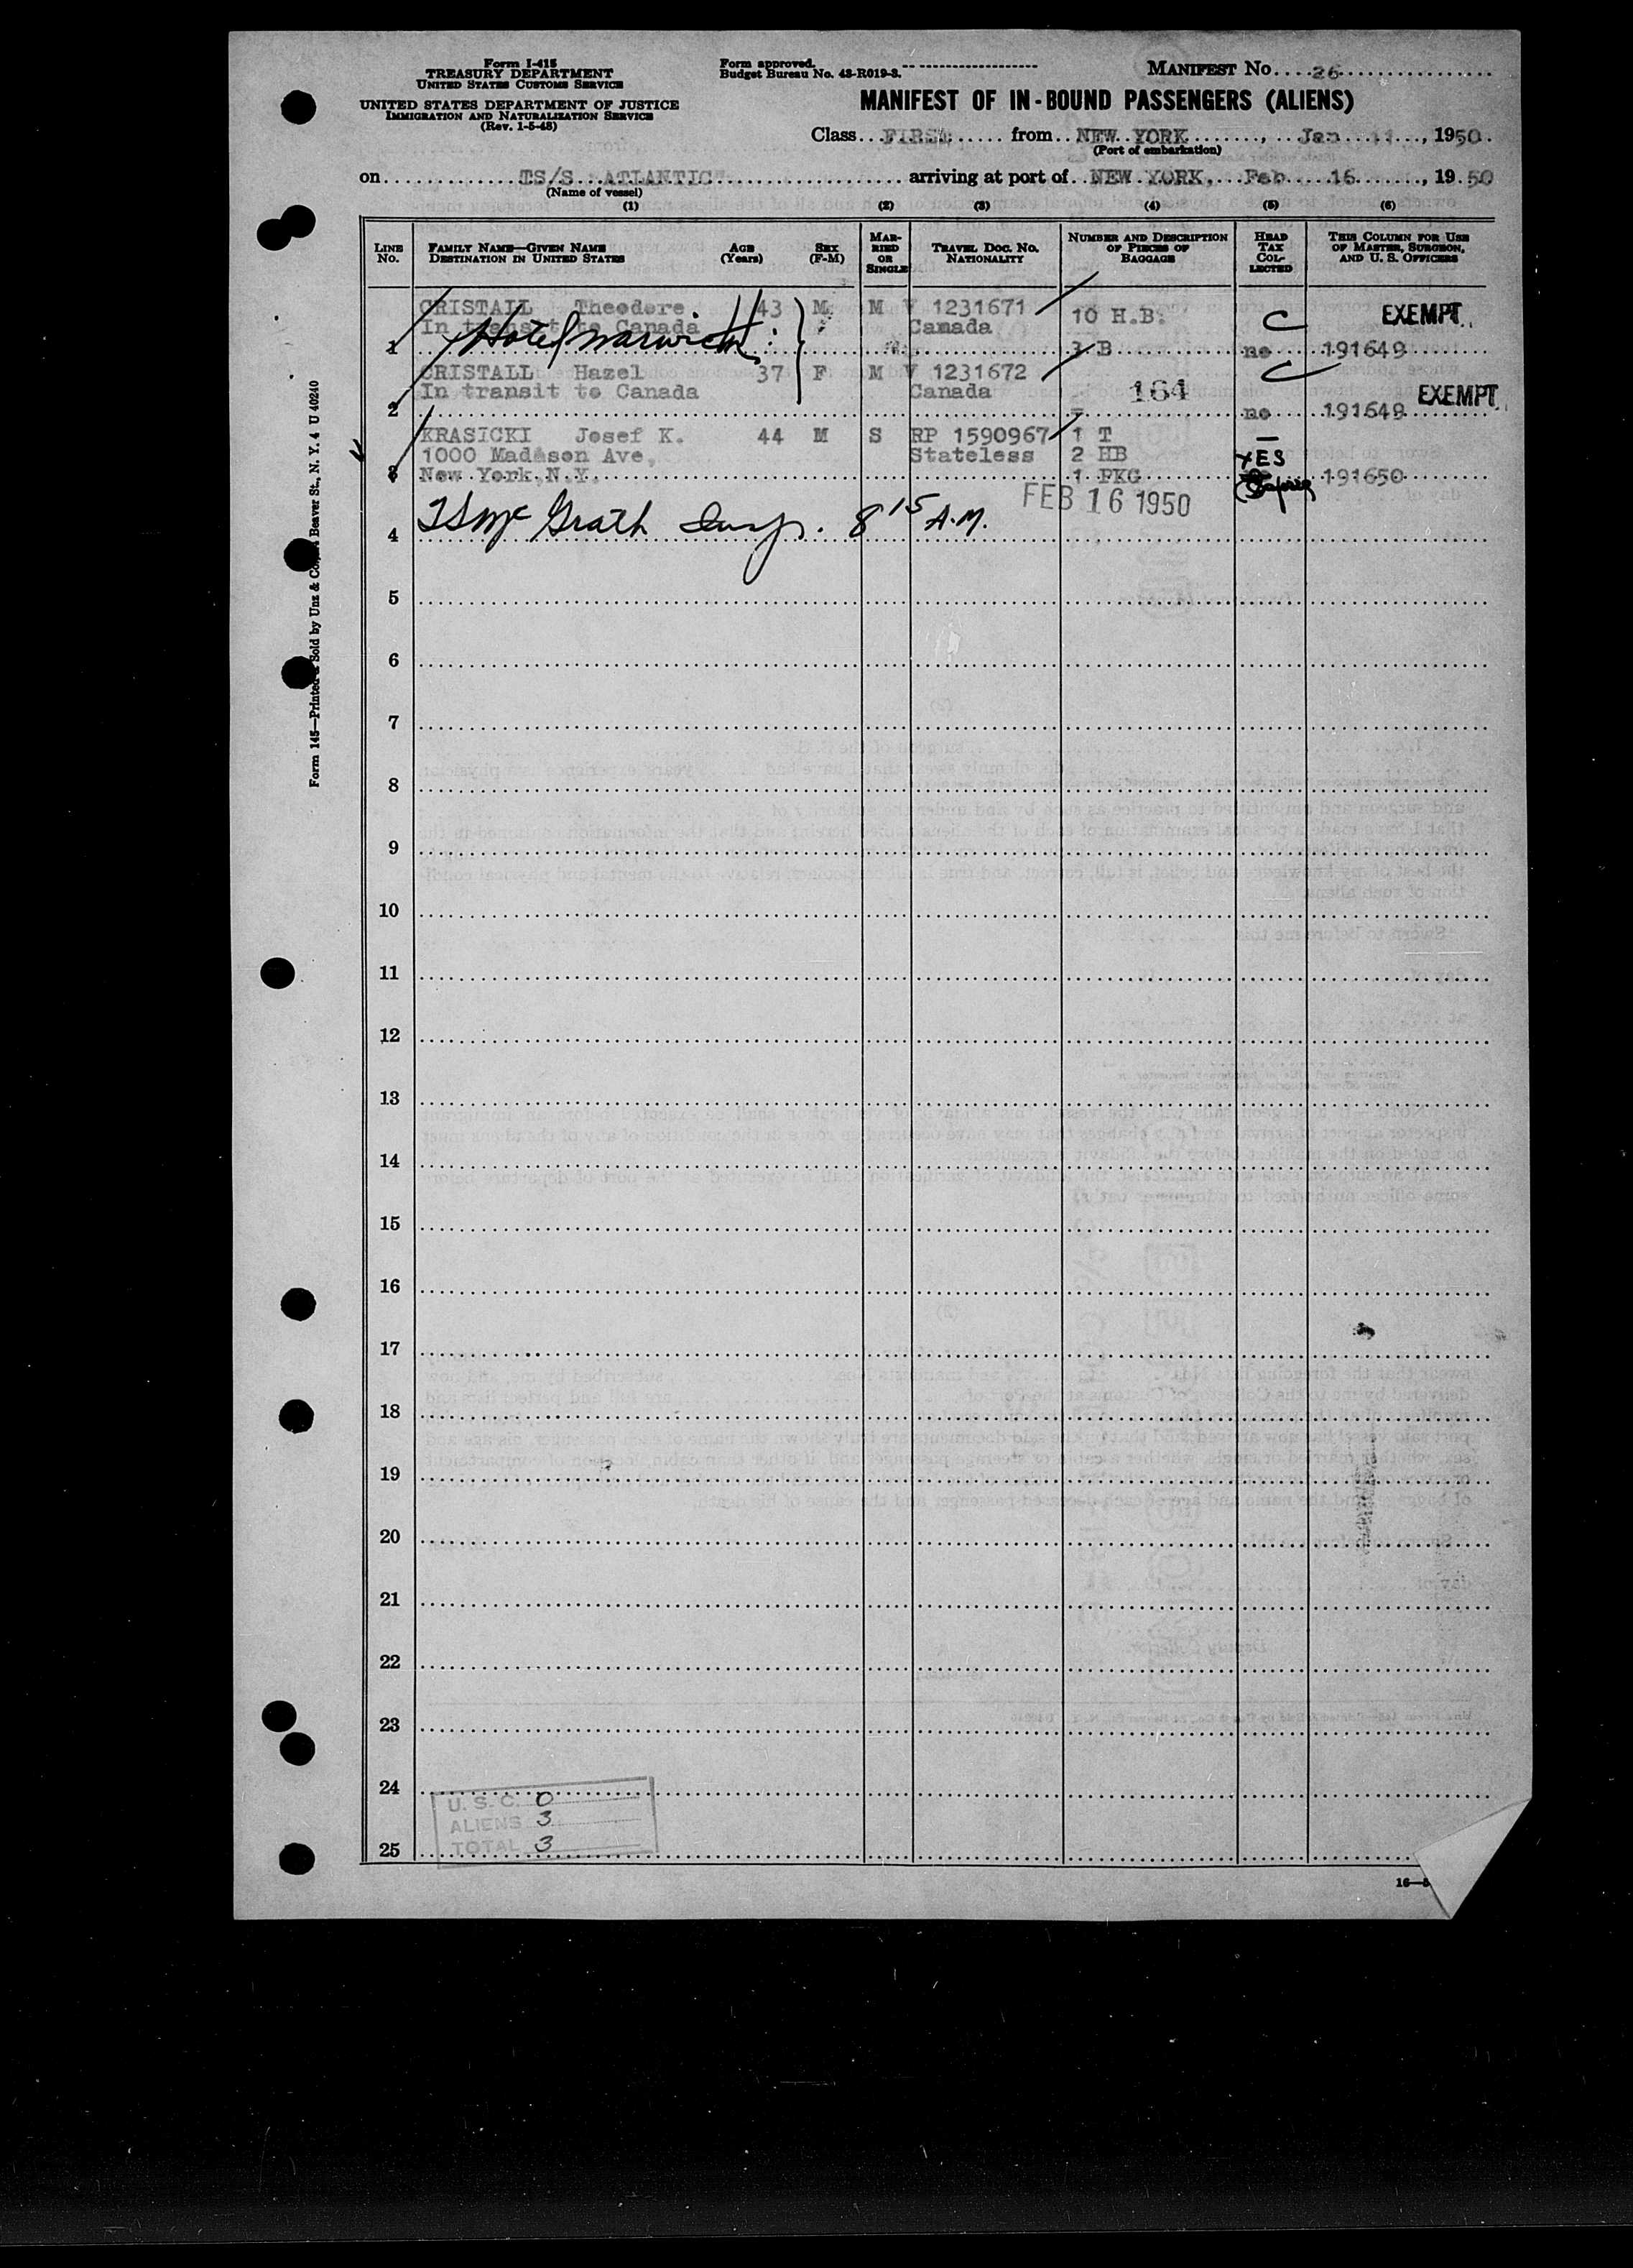 Form I-415
TREASURY DEPARTMENT
UNITED STATES CUSTOMS SERVICE
UNITED STATES DEPARTMENT OF JUSTICE
IMMIGRATION AND NATURALIZATION SERVICE
(Rev. 1-5-48)
Form approved.
Budget Bureau No. 43-R019-3.
MANIFEST No. 26
MANIFEST OF IN-BOUND PASSENGERS (ALIENS)
Class FIRST from NEW YORK, Jan 1950
(Port of embarkation)
on TS/S "ATLANTIC" arriving at port of NEW YORK, Feb 16, 1950
(Name of vessel)
(1) (2) (3) (4) (5) (6)
LINE No. FAMILY NAME—GIVEN NAME DESTINATION IN UNITED STATES AGE (Years) SEX (F-M) MARRIED OR SINGLE TRAVEL DOC. No. NATIONALITY NUMBER AND DESCRIPTION OF PIECES OF BAGGAGE HEAD TAX COLLECTED THIS COLUMN FOR USE OF MASTER, SURGEON, AND U. S. OFFICERS
CRISTALL Theodore 43 M M V 1231671 10 H.B. C EXEMPT
In transit to Canada Canada
Hotel Warwick
1 3 B no 191649
CRISTALL Hazel 37 F M V 1231672 C
In transit to Canada Canada 164 EXEMPT
2 no 191649
KRASICKI Josef K. 44 M S RP 1590967 1 T
1000 Madison Ave, Stateless 2 HB YES
3 New York, N.Y. 1 PKG 191650
FEB 16 1950
4 McGrath Insp. 8 15 A.M.
5
6
7
8
9
10
11
12
13
14
15
16
17
18
19
20
21
22
23
24
25
U. S. C. 0
ALIENS 3
TOTAL 3
Form 145—Printed & Sold by Unz & Co., Beaver St., N. Y. 4 U 40240